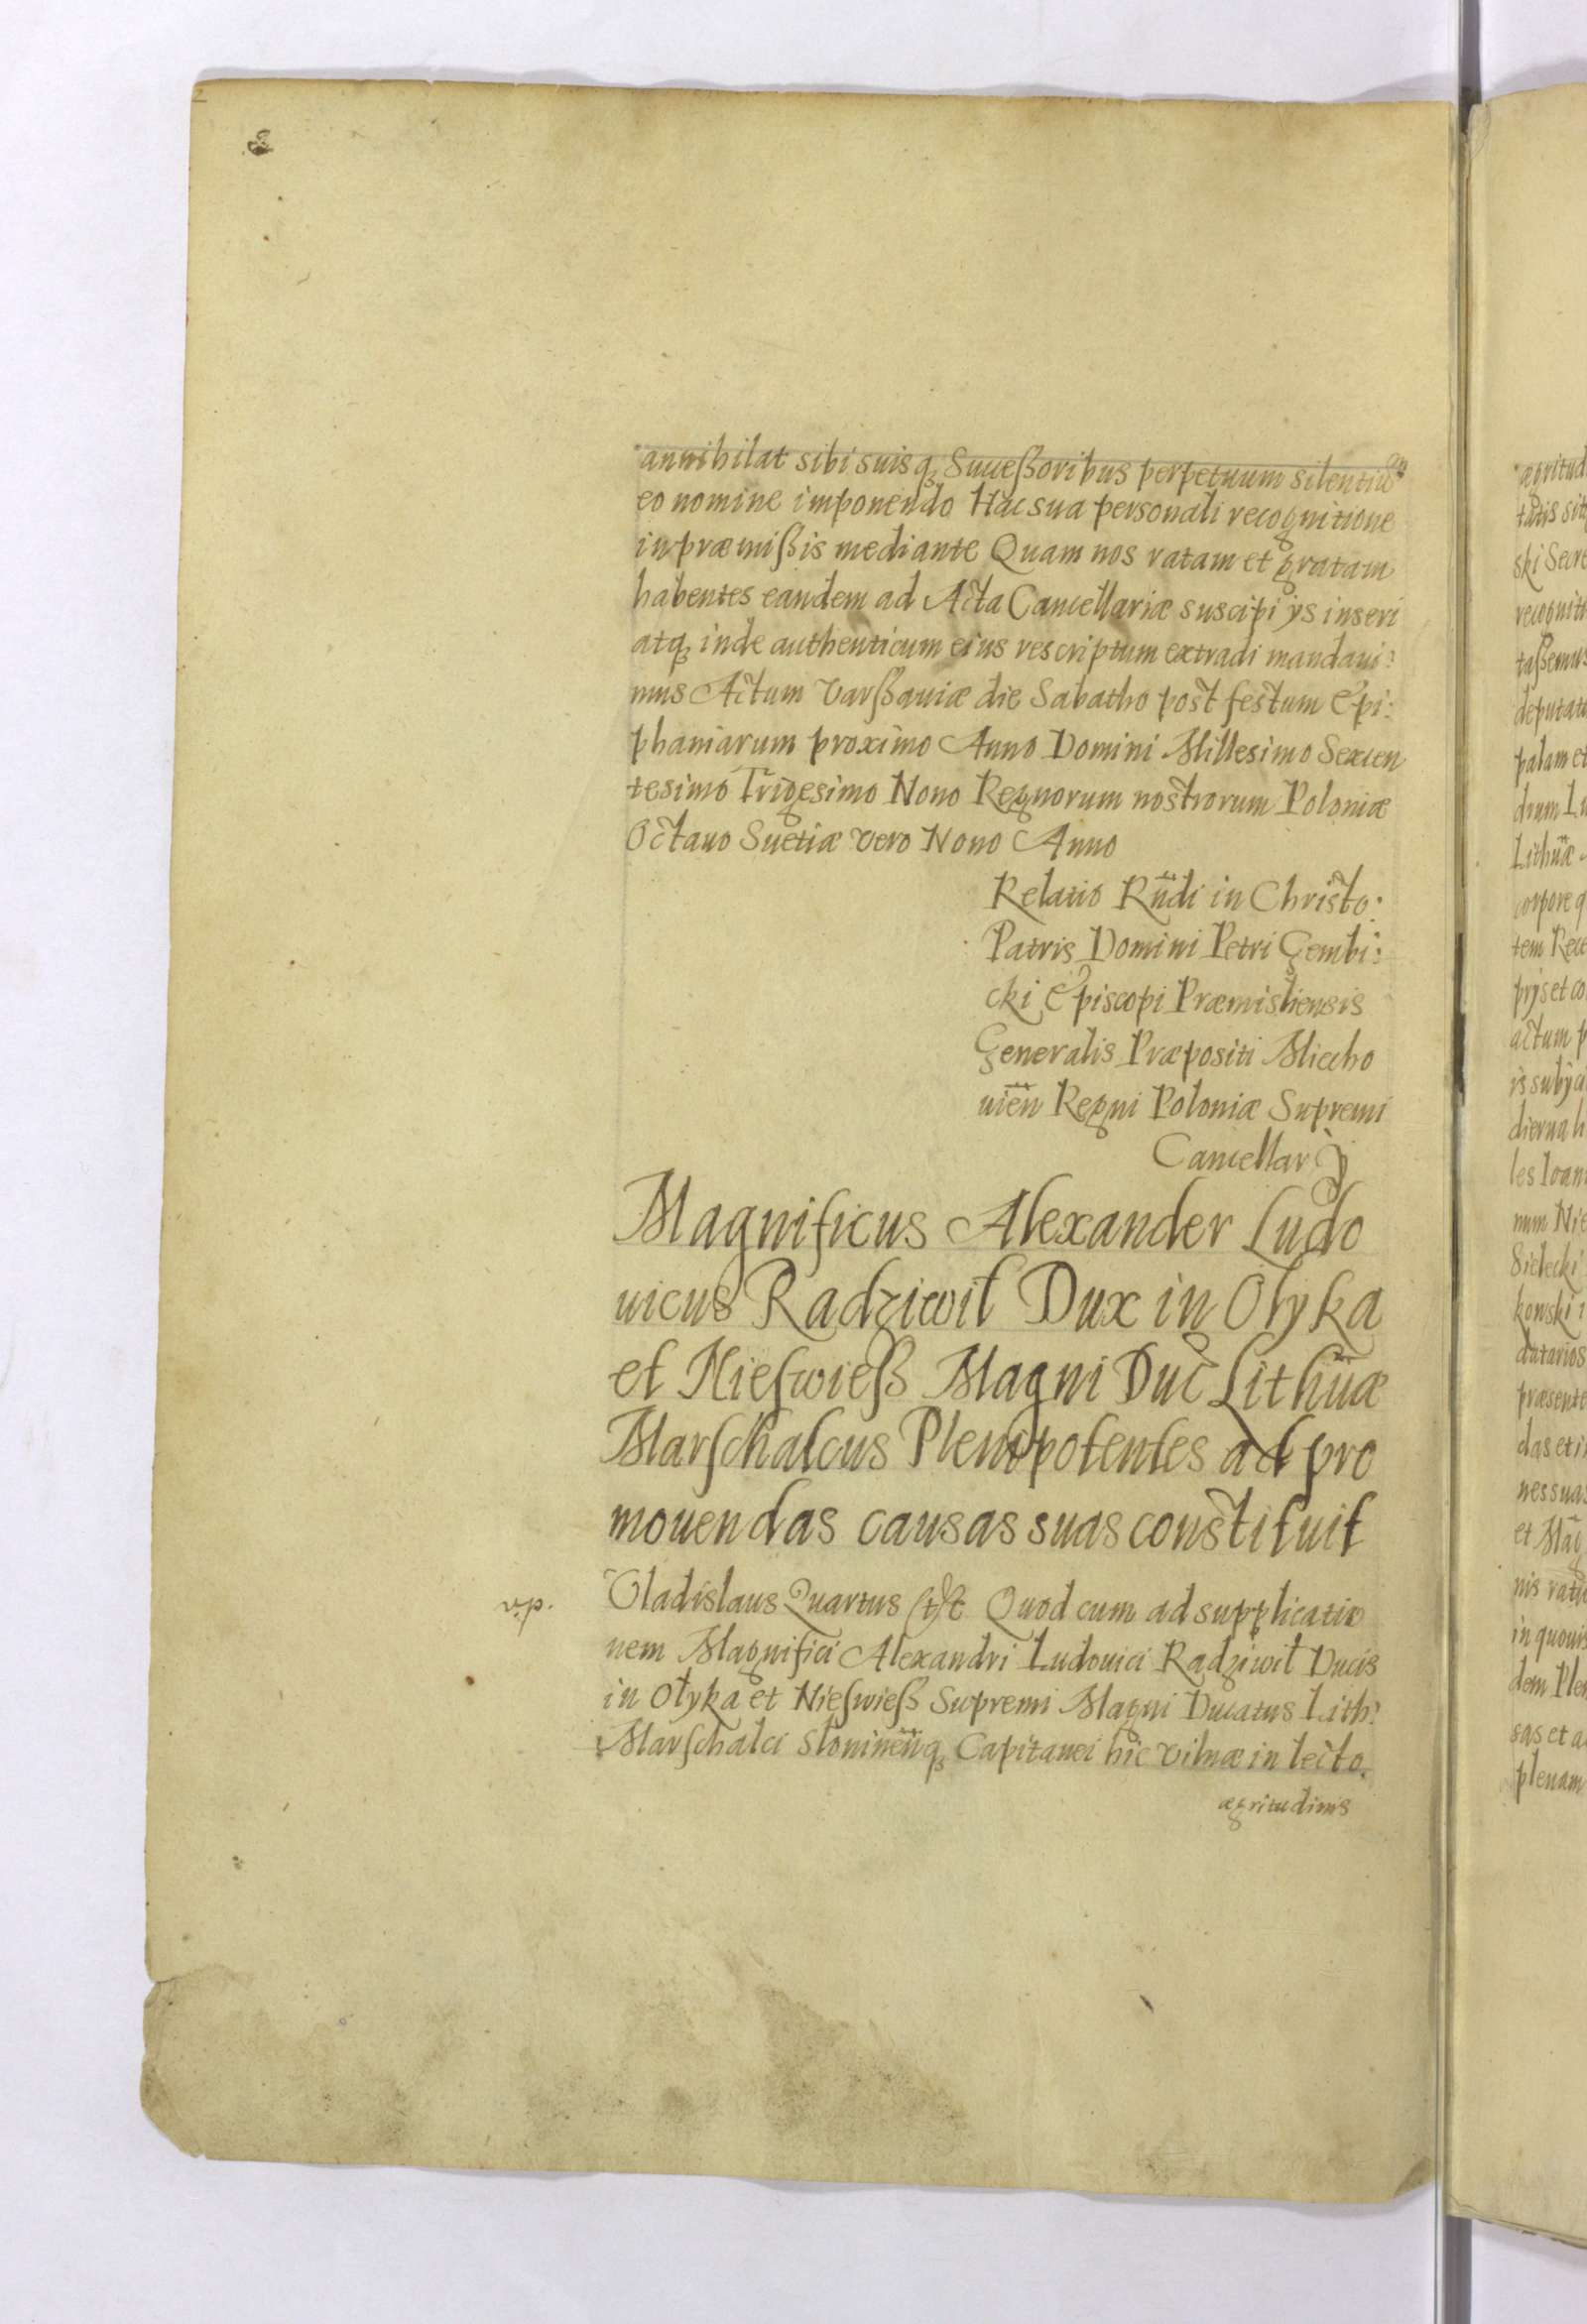 annihilat sibi suisq; Succeßoribus perpetuum silentiū
eo nomine imponendo Hac sua personali recognitione
in præmißis mediante Quam nos ratam et gratam
habentes eandem ad Acta Cancellariæ suscipi ijs inseri
atq; inde authenticum eius rescriptum extradi mandaui:
mus Actum Varßauiæ die Sabatho post festum Epi:
phaniarum proximo Anno Domini Millesimo Sexcen
tesimo Trigesimo Nono Regnorum nostrorum Poloniæ
Octauo Suetiæ vero Nono Anno
Relatio Rñdi in Christo:
Patris Domini Petri Gembi:
cki Episcopi Præmisliensis
Generalis Præpositi Miecho
uieñ Regni Poloniæ Supremi
Cancellarij
Magnificus Alexander Ludo
uicus Radziwił Dux in Ołyka
et Nieſwieß Magni Duc Lithüæ
Marſchalcus Plenipotentes ad pro
mouendas causas suas constituit
Vladislaus Quartus &c Quod cum ad supplicatio
nem Magnifici Alexandri Ludouici Radziwił Ducis
in Ołyka et Nieſwieß Supremi Magni Ducatus Lith:
Marſchalci Słonimeñq; Capitanei hic Vilnæ in lecto
ægritudinis
ægritud
tatis sit
ski Secre
recogniti
taßemus
deputat
palam et
dium Lu
Lithüæ
corpore q
tem Rec
prijs et co
actum p
is subija
dierna h
les Ioan
num Nie
Sielecki
kowski i
datarios
præsente
das et i
nes suas
et Mag
nis ratu
in quouis
dem Plen
sas et a
plenam